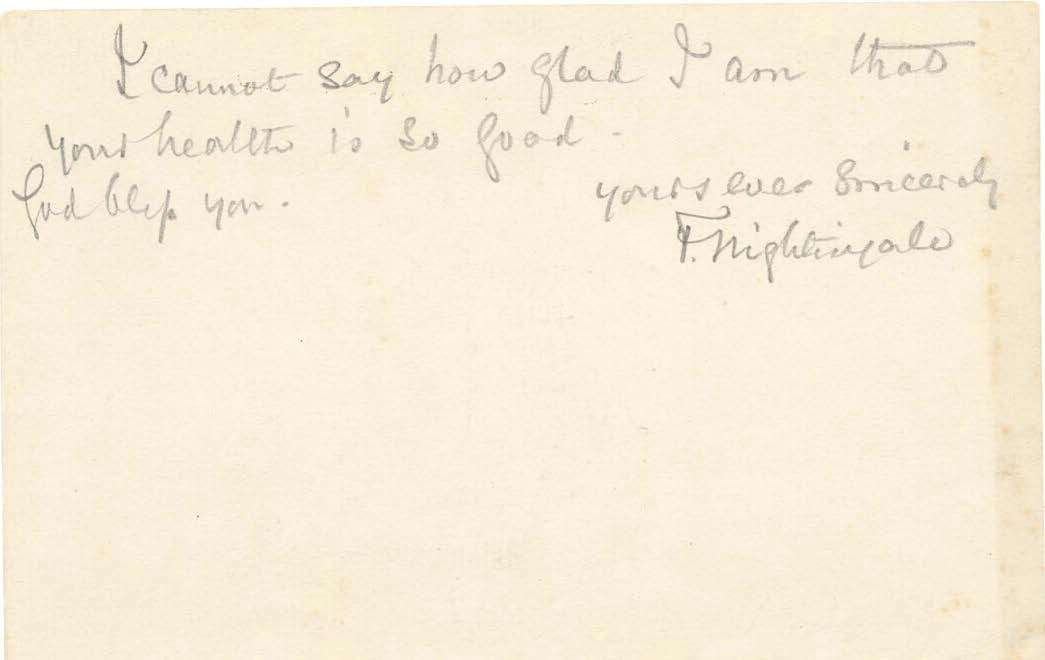 I cannot say how glad I am that
your health is so good -
God bless you.
yours ever Sincerely
F. Nightingale